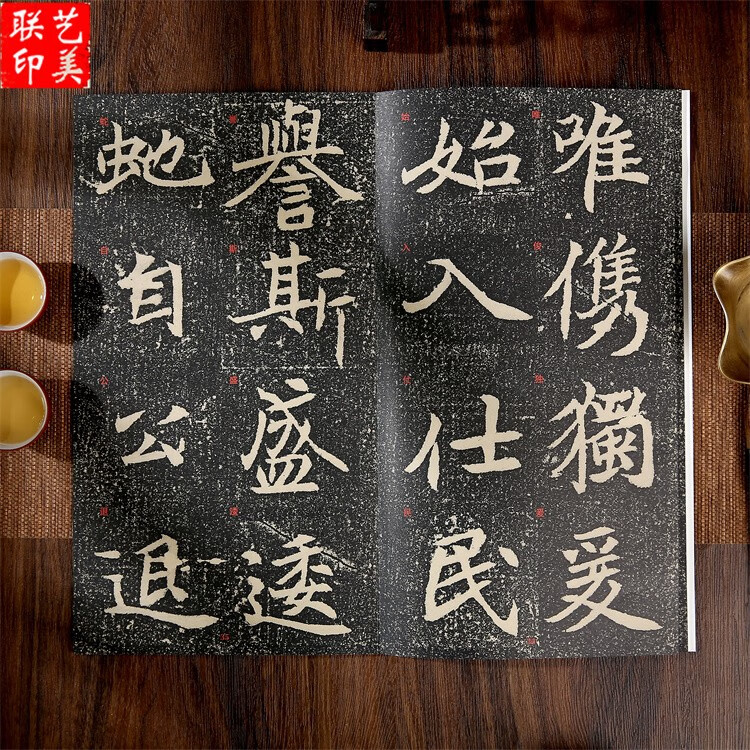 艺美
联印
唯儁獨爰
始入仕民
譽斯盛逶
虵自公退